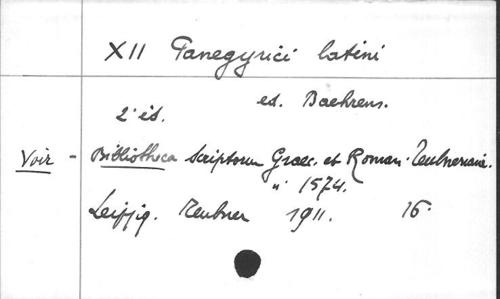 XII Panegyrici latini
ed. Baehrens.
2e éd.
Voir - Bibliotheca Scriptorum Graec. et Roman. Teubneriana.
n° 1574.
Leipzig. Teubner 1911. 16°